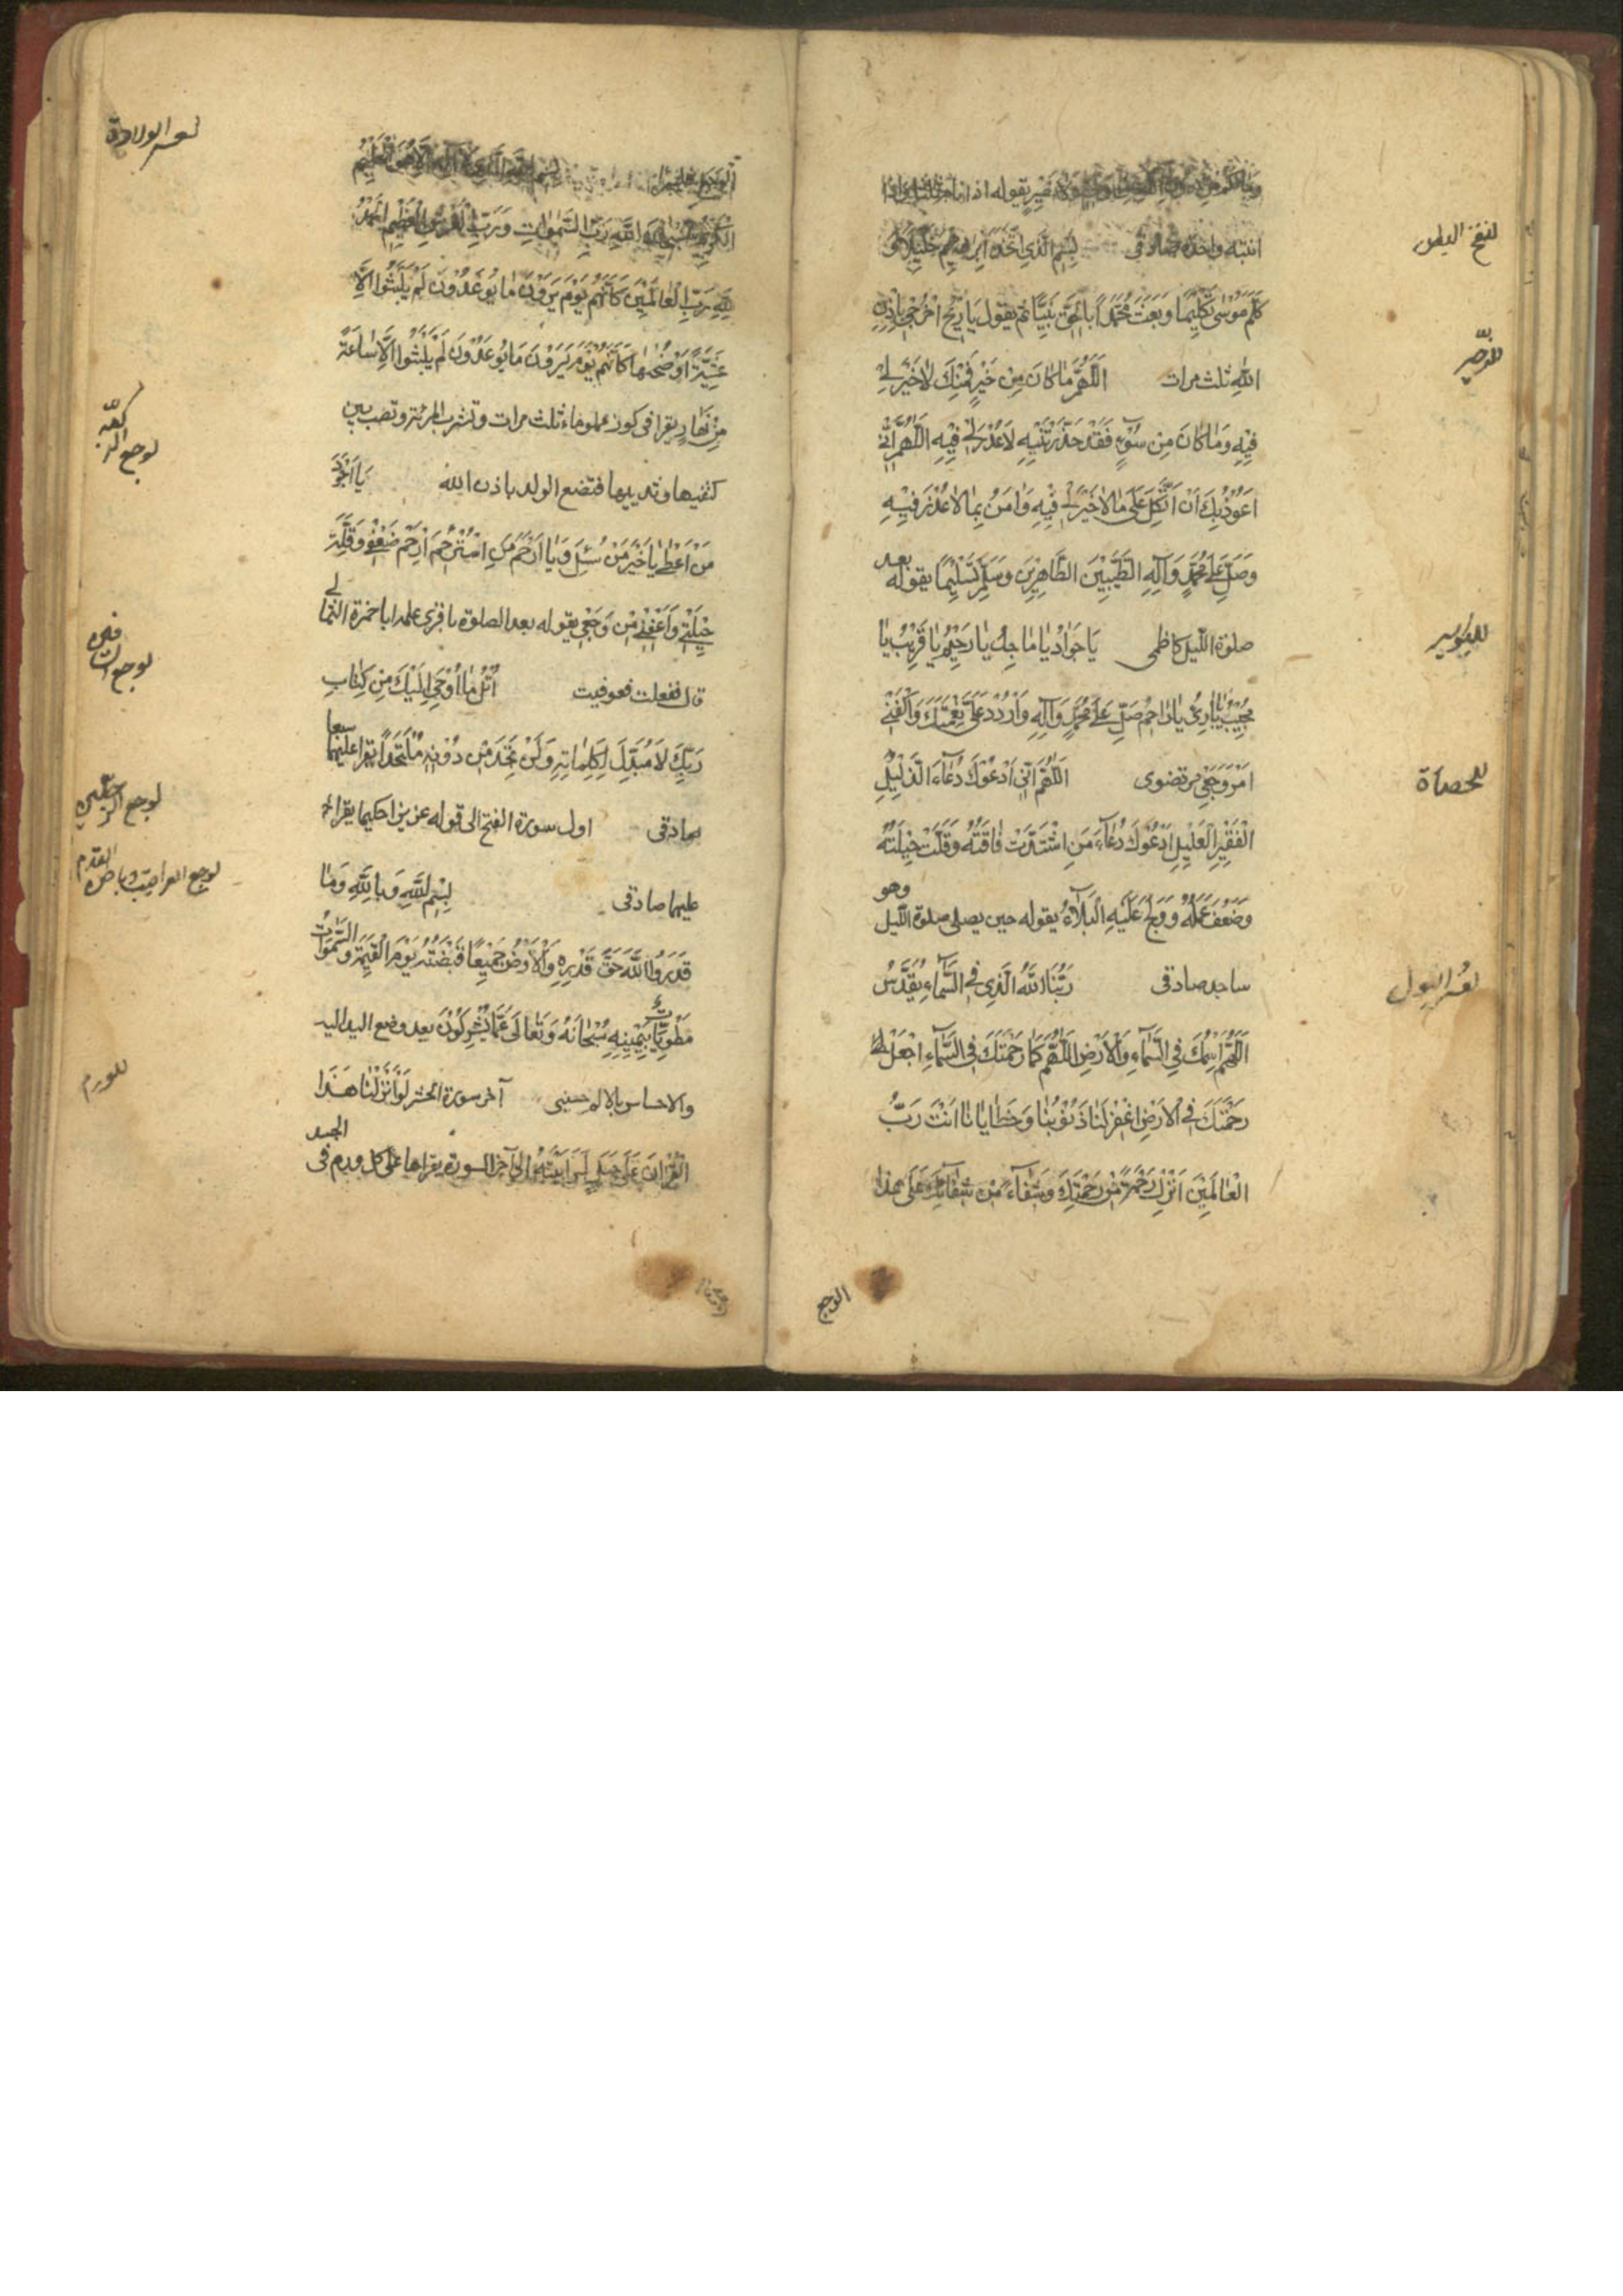 وما لكم من دون الله من ولي ولا نصير يقوله اذا نام فاذا
انتبه واحدة صادقى بِسْمِ الَّذِي اتَّخَذَ اِبْرَاهِيمَ خَلِيلًا وَ
لنفخ البطن
كَلَّمَ مُوسٰى تَكْلِيمًا وَبَعَثَ مُحَمَّدًا بِالْحَقِّ نَبِيًّا ثم يقول يَا رِيحُ اخْرُجِي بِاِذْنِ
اللّٰهِ ثلث مرات اَللّٰهُمَّ مَا كَانَ مِنْ خَيْرٍ فَمِنْكَ لَا خَيْرَ لِي
للزحير
فِيهِ وَمَا كَانَ مِنْ سُوءٍ فَقَدْ حَذَّرْتَنِيهِ لَا عُذْرَ لِي فِيهِ اَللّٰهُمَّ اِنِّي
اَعُوذُ بِكَ اَنْ اَتَّكِلَ عَلٰى مَا لَا خَيْرَ لِي فِيهِ وَاٰمَنُ بِمَا لَا عُذْرَ فِيهِ
وَصَلِّ عَلٰى مُحَمَّدٍ وَآلِهِ الطَّيِّبِينَ الطَّاهِرِينَ وَسَلِّمْ تَسْلِيمًا يقوله بعد
صلوة الليل كاظمى يَا جَوَادُ يَا مَاجِدُ يَا رَحِيمُ يَا قَرِيبُ يَا
للبواسير
مُجِيبُ يَا بَارِئُ يَا رَاحِمُ صَلِّ عَلٰى مُحَمَّدٍ وَآلِهِ وَارْدُدْ عَلَيَّ نِعْمَتَكَ وَاكْفِنِي
اَمْرَ وَجَعِي مرتضوى اَللّٰهُمَّ اِنِّي اَدْعُوكَ دُعَاءَ الذَّلِيلِ
للحصاة
الْفَقِيرِ الْعَلِيلِ اَدْعُوكَ دُعَاءَ مَنِ اشْتَدَّتْ فَاقَتُهُ وَقَلَّتْ حِيلَتُهُ
وَضَعُفَ عَمَلُهُ وَ عَلَيْهِ الْبَلَاءُ يقوله حين يصلى صلوة الليل وهو
ساجد صادقى رَبُّنَا اللّٰهُ الَّذِي فِي السَّمَاءِ تَقَدَّسَ
لعسر البول
اَللّٰهُمَّ اسْمُكَ فِي السَّمَاءِ وَالْاَرْضِ اَللّٰهُمَّ كَمَا رَحْمَتُكَ فِي السَّمَاءِ اجْعَلْ
رَحْمَتَكَ فِي الْاَرْضِ اغْفِرْ لَنَا ذُنُوبَنَا وَخَطَايَانَا اَنْتَ رَبُّ
الْعَالَمِينَ اَنْزِلْ رَحْمَةً مِنْ رَحْمَتِكَ وَشِفَاءً مِنْ شِفَائِكَ عَلٰى هٰذَا
الوجع
الْوَجَعِ بِسْمِ اللّٰهِ الَّذِي لَا اِلٰهَ اِلَّا هُوَ الْحَلِيمُ
لعسر الولادة
الْكَرِيمُ سُبْحَانَ اللّٰهِ رَبِّ السَّمٰوَاتِ وَرَبِّ الْعَرْشِ الْعَظِيمِ اَلْحَمْدُ
لِلّٰهِ رَبِّ الْعَالَمِينَ كَاَنَّهُمْ يَوْمَ يَرَوْنَ مَا يُوعَدُونَ لَمْ يَلْبَثُوا اِلَّا
عَشِيَّةً اَوْ ضُحٰهَا كَاَنَّهُمْ يَوْمَ يَرَوْنَ مَا يُوعَدُونَ لَمْ يَلْبَثُوا اِلَّا سَاعَةً
مِنْ نَهَارٍ يقرا فى كوز مملو ماء ثلث مرات وتشرب المرئة وتصب بين
كتفيها وثدييها فتضع الولد باذن الله يَا اَجْوَدَ
لوجع الركبة
مَنْ اَعْطٰى يَا خَيْرَ مَنْ سُئِلَ وَيَا اَرْحَمَ مَنِ اسْتُرْحِمَ اِرْحَمْ ضَعْفِي وَقِلَّةَ
حِيلَتِي وَاَعْفِنِي مِنْ وَجَعِي يقوله بعد الصلوة باقرى علمه ابا حمزة الثمالى
قال ففعلت فعوفيت اُتْلُ مَا اُوحِيَ اِلَيْكَ مِنْ كِتَابِ
لوجع الساقين
رَبِّكَ لَا مُبَدِّلَ لِكَلِمَاتِهِ وَلَنْ تَجِدَ مِنْ دُونِهِ مُلْتَحَدًا يقرا عليهما سبعا
صادقى اول سورة الفتح الى قوله عزيزا حكيما يقرا
لوجع الرجلين
عليها صادقى بِسْمِ اللّٰهِ وَبِاللّٰهِ وَمَا
لوجع العراقيب وباطن القدم
قَدَرُوا اللّٰهَ حَقَّ قَدْرِهِ وَالْاَرْضُ جَمِيعًا قَبْضَتُهُ يَوْمَ الْقِيٰمَةِ وَالسَّمٰوَاتُ
مَطْوِيَّاتٌ بِيَمِينِهِ سُبْحَانَهُ وَتَعَالٰى عَمَّا يُشْرِكُونَ بعد وضع اليد اليه
والاحساس بالالم حسينى آخر سورة الحشر لَوْ اَنْزَلْنَا هٰذَا
للورم
الْقُرْاٰنَ عَلٰى جَبَلٍ لَرَاَيْتَهُ الى آخر السورة يقراها على كل ورم فى الجسد